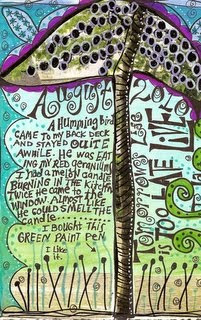 August 20
A Humming bird
CAME TO MY BACK DECK
AND STAYED QUITE
AWHILE. HE WAS EAT
ING MY RED geranium
I had a melon candle
BURNING IN THE kitchen
TWICE HE came TO THE
WINDOW. ALMOST LIKE
HE COULD SMELL THE
candle
I BOUGHT THIS
GREEN PAINT PEN
I Like
Tomorrows Life
is TOO LATE LIVE